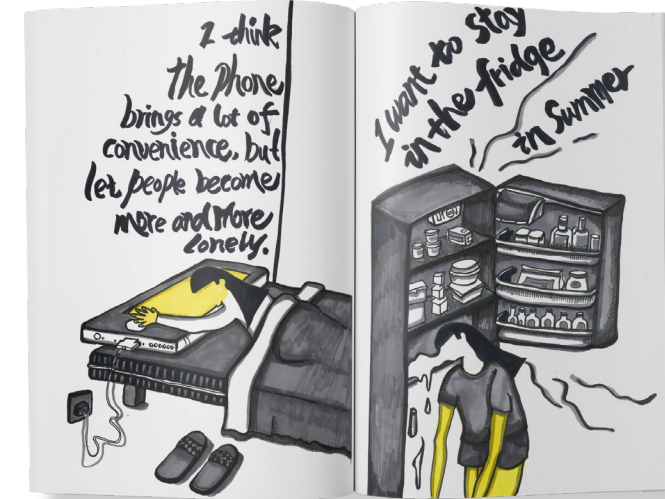 I think
the phone
brings a lot of
convenience, but
let people become
more and more
lonely.
I want to stay
in the fridge
in summer